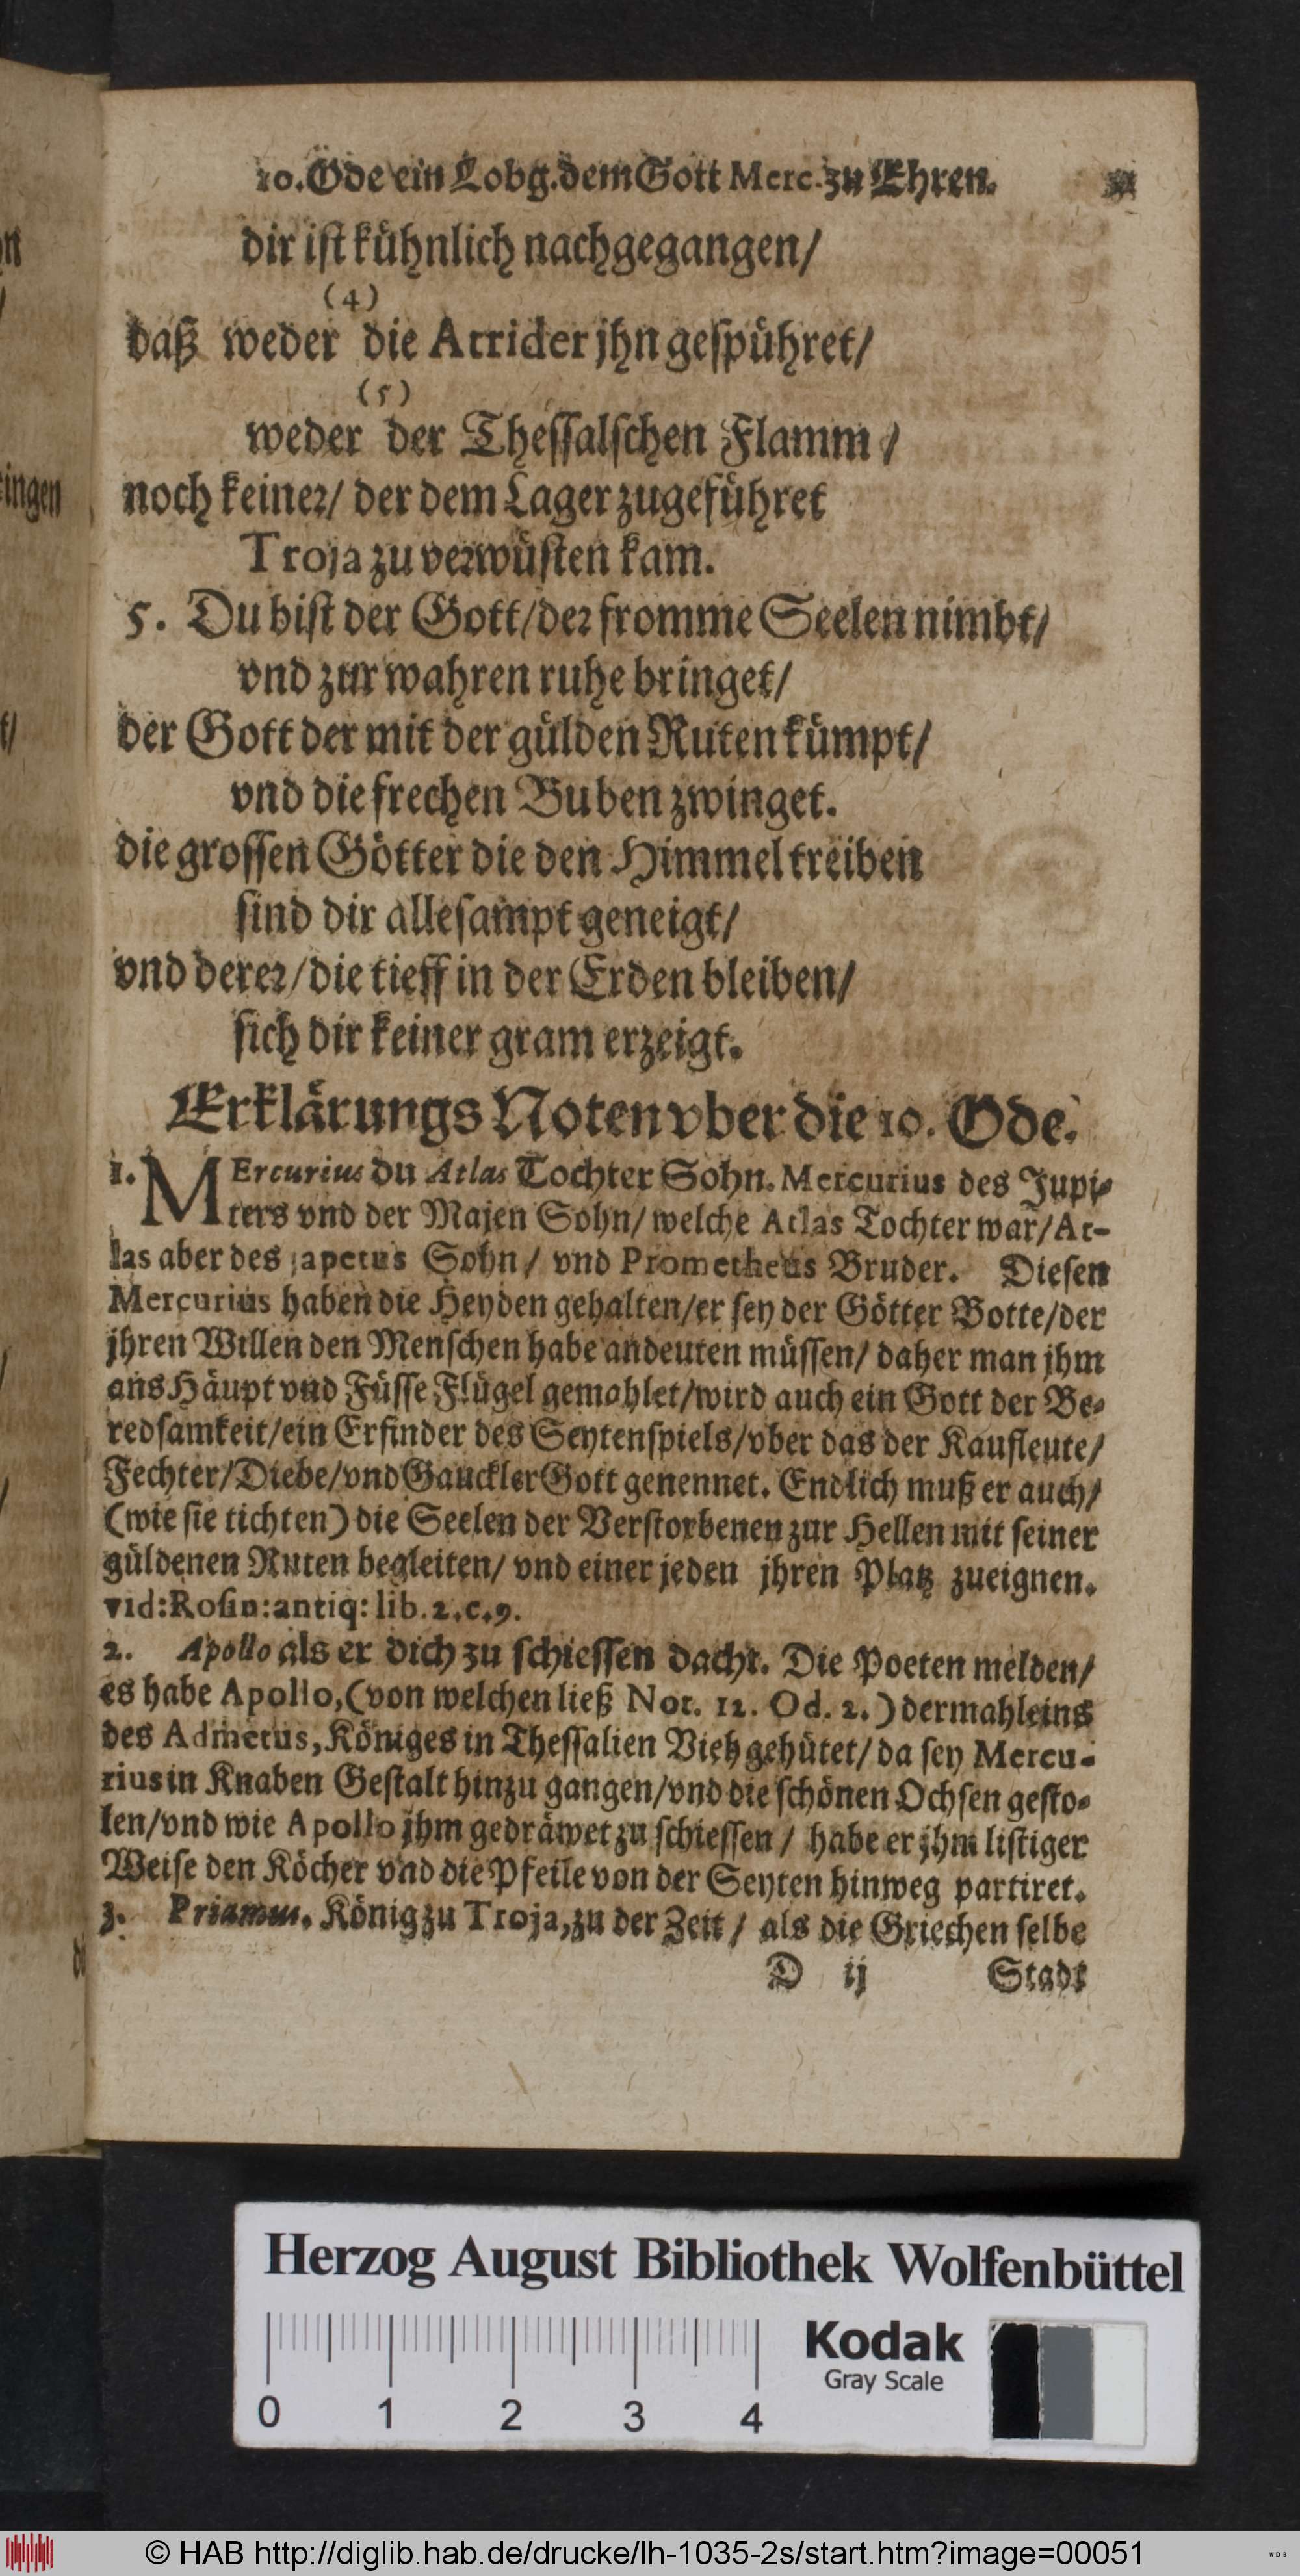 10. Ode ein Lobg. dem Gott Merc. zu Ehren.
dir ist kühnlich nachgegangen/
(4)
daß weder die Atrider jhn gespühret/
(5)
weder der Thessalschen Flamm/
noch keiner/ der dem Lager zugeführet
Troja zu verwüsten kam.
5. Du bist der Gott/ der fromme Seelen nimbt/
vnd zur wahren ruhe bringet/
der Gott der mit der gülden Ruten kümpt/
vnd die frechen Buben zwinget.
die grossen Götter die den Himmel treiben
sind dir allesampt geneigt/
vnd derer/ die tieff in der Erden bleiben/
sich dir keiner gram erzeigt.
Erklärungs Noten vber die 10. Ode.
1. MErcurius du Atlas Tochter Sohn. Mercurius des Jupi-
ters vnd der Majen Sohn/ welche Atlas Tochter war/ At-
las aber des Japetus Sohn/ vnd Prometheus Bruder. Diesen
Mercurius haben die Heyden gehalten/ er sey der Götter Botte/ der
jhren Willen den Menschen habe andeuten müssen/ daher man jhm
ans Häupt vnd Füsse Flügel gemahlet/ wird auch ein Gott der Be-
redsamkeit/ ein Erfinder des Seytenspiels/ vber das der Kaufleute/
Fechter/ Diebe/ vnd Gauckler Gott genennet. Endlich muß er auch/
(wie sie tichten) die Seelen der Verstorbenen zur Hellen mit seiner
güldenen Ruten begleiten/ vnd einer jeden jhren Platz zueignen.
vid: Rosin: antiq: lib. 2. c. 9.
2. Apollo als er dich zu schiessen dacht. Die Poeten melden/
es habe Apollo, (von welchen ließ Not. 12. Od. 2.) dermahleins
des Admetus, Königes in Thessalien Vieh gehütet/ da sey Mercu-
rius in Knaben Gestalt hinzu gangen/ vnd die schönen Ochsen gesto-
len/ vnd wie Apollo jhm gedräwet zu schiessen/ habe er jhm listiger
Weise den Köcher vnd die Pfeile von der Seyten hinweg partiret.
3. Priamus. König zu Troja, zu der Zeit/ als die Griechen selbe
D ij Stadt
Herzog August Bibliothek Wolfenbüttel
Kodak
Gray Scale
0 1 2 3 4
© HAB http://diglib.hab.de/drucke/lh-1035-2s/start.htm?image=00051